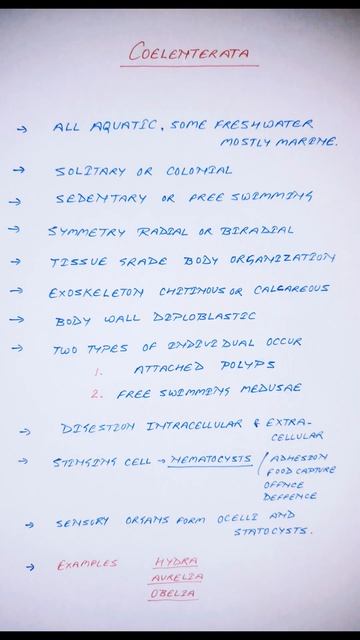 COELENTERATA
→ ALL AQUATIC, SOME FRESHWATER
MOSTLY MARINE.
→ SOLITARY OR COLONIAL
→ SEDENTARY OR FREE SWIMMING
→ SYMMETRY RADIAL OR BIRADIAL
→ TISSUE GRADE BODY ORGANIZATION
→ EXOSKELETON CHITINOUS OR CALCAREOUS
→ BODY WALL DIPLOBLASTIC
→ TWO TYPES OF INDIVIDUAL OCCUR
1. ATTACHED POLYPS
2. FREE SWIMMING MEDUSAE
→ DIGESTION INTRACELLULAR & EXTRA-
CELLULAR
→ STINGING CELL → NEMATOCYSTS / ADHESION
FOOD CAPTURE
OFFNCE
DEFFENCE
→ SENSORY ORGANS FORM OCELLI AND
STATOCYSTS.
→ EXAMPLES HYDRA
AURELIA
OBELIA